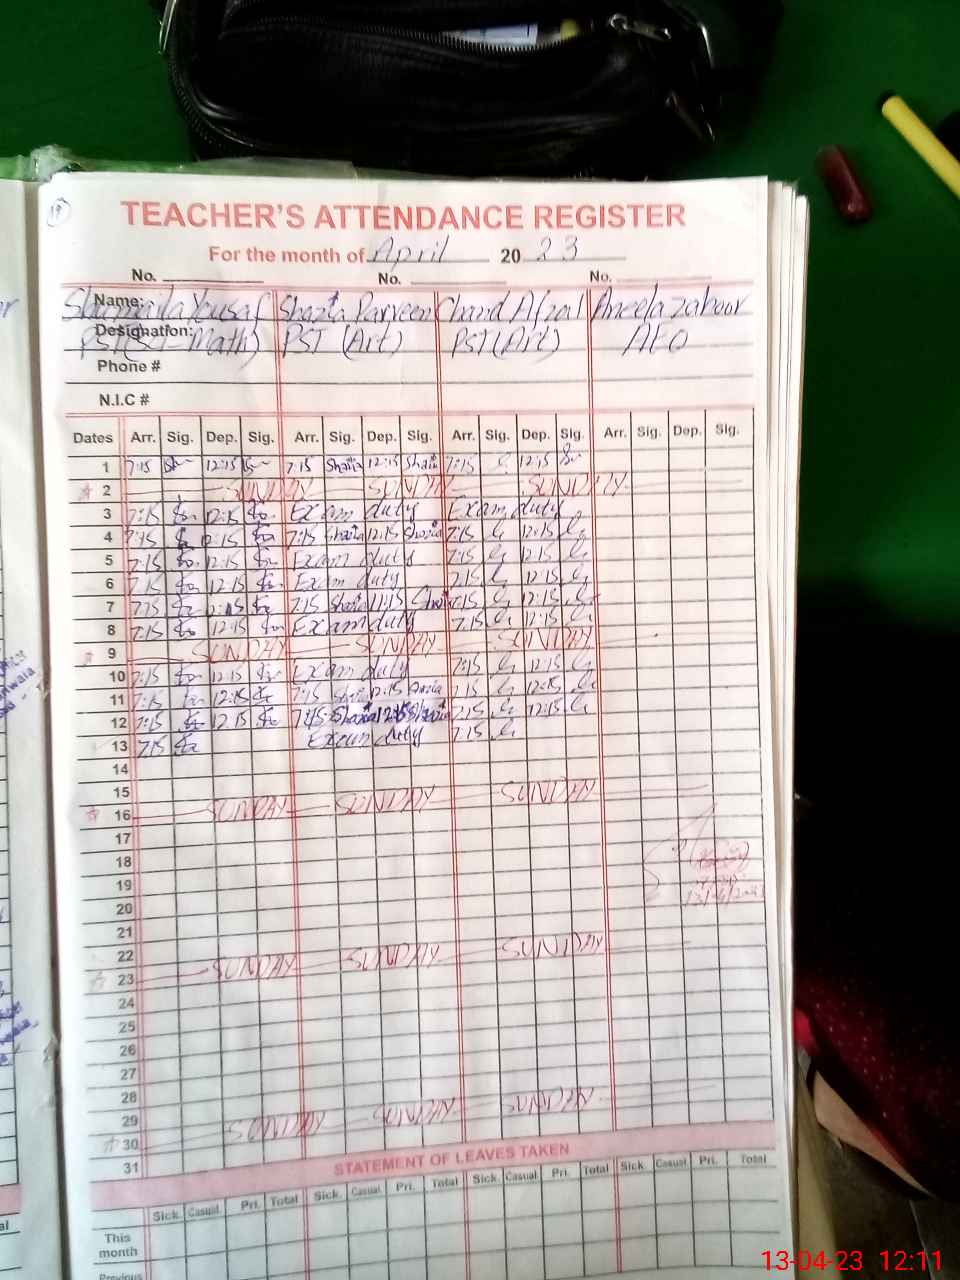 19
TEACHER'S ATTENDANCE REGISTER
For the month of April 2023
No. No. No.
Name: Shumaila Yousaf Shazia Parveen Chand Afzal Aneela Zahoor
Designation: PST (Sci-Math) PST (Art) PST (Art) AEO
Phone #
N.I.C #
Dates Arr. Sig. Dep. Sig. Arr. Sig. Dep. Sig. Arr. Sig. Dep. Sig. Arr. Sig. Dep. Sig.
1 7:15 12:15 7:15 Shazia 12:15 Shazia 7:15 12:15
2 SUNDAY SUNDAY SUNDAY
3 7:15 12:15 Exam duty Exam duty
4 7:15 12:15 7:15 Shazia 12:15 Shazia 7:15 12:15
5 7:15 12:15 Exam duty 7:15 12:15
6 7:15 12:15 Exam duty 7:15 12:15
7 7:15 12:15 7:15 Shazia 11:15 Shazia 7:15 12:15
8 7:15 12:15 Exam duty 7:15 12:15
9 SUNDAY SUNDAY SUNDAY
10 7:15 12:15 Exam duty 7:15 12:15
11 7:15 12:15 7:15 Shazia 12:15 Shazia 7:15 12:15
12 7:15 12:15 7:15 Shazia 12:15 Shazia 7:15 12:15
13 7:15 Exam duty 7:15
14
15
16 SUNDAY SUNDAY SUNDAY
17
18
19
20
21
22
23 SUNDAY SUNDAY SUNDAY
24
25
26
27
28
29
30 SUNDAY SUNDAY SUNDAY
31
STATEMENT OF LEAVES TAKEN
Sick. Casual. Pri. Total Sick. Casual. Pri. Total Sick. Casual. Pri. Total Sick. Casual. Pri. Total
This
month
Previous
13-04-23 12:11